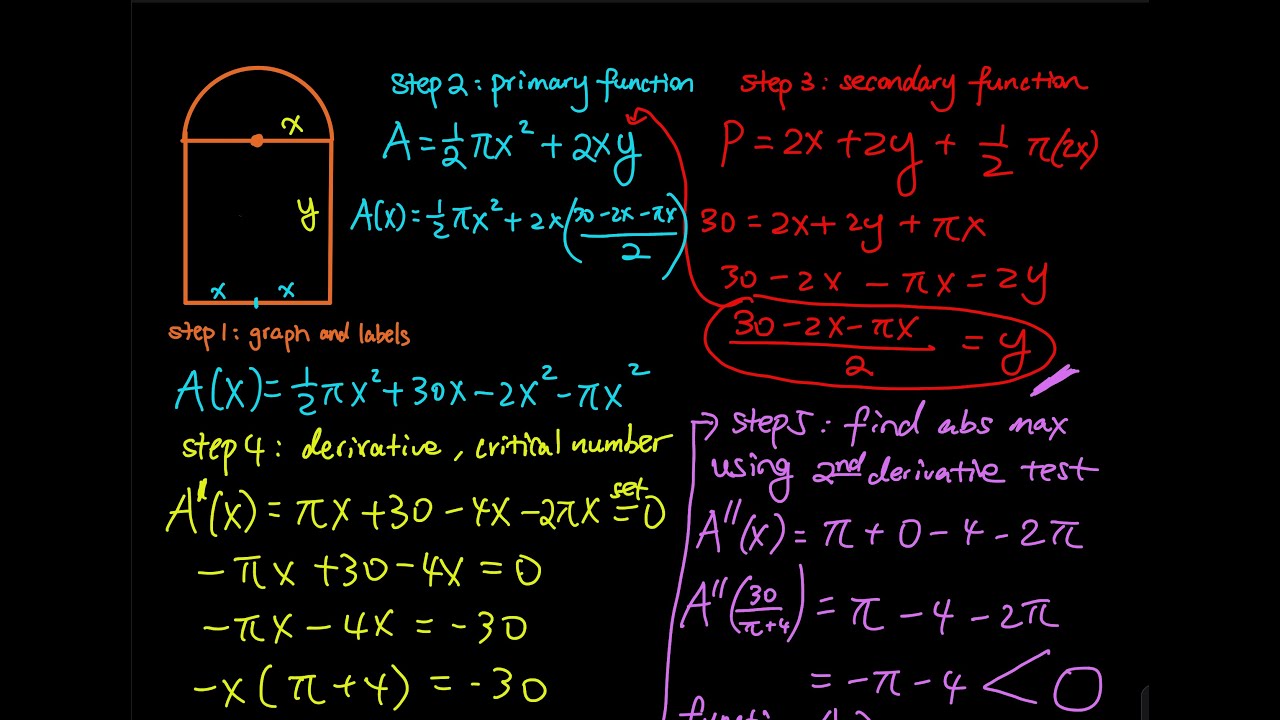 x
y
x x
step 1: graph and labels
step 2: primary function
A = 1/2 πx² + 2xy
A(x) = 1/2 πx² + 2x((30-2x-πx)/2)
step 3: secondary function
P = 2x + 2y + 1/2 π(2x)
30 = 2x + 2y + πx
30 - 2x - πx = 2y
(30-2x-πx)/2 = y
A(x) = 1/2 πx² + 30x - 2x² - πx²
step 4: derivative, critical number
A'(x) = πx + 30 - 4x - 2πx set = 0
-πx + 30 - 4x = 0
-πx - 4x = -30
-x(π+4) = -30
→ step 5: find abs max
using 2nd derivative test
A''(x) = π + 0 - 4 - 2π
A''(30/(π+4)) = π - 4 - 2π
= -π - 4 < 0